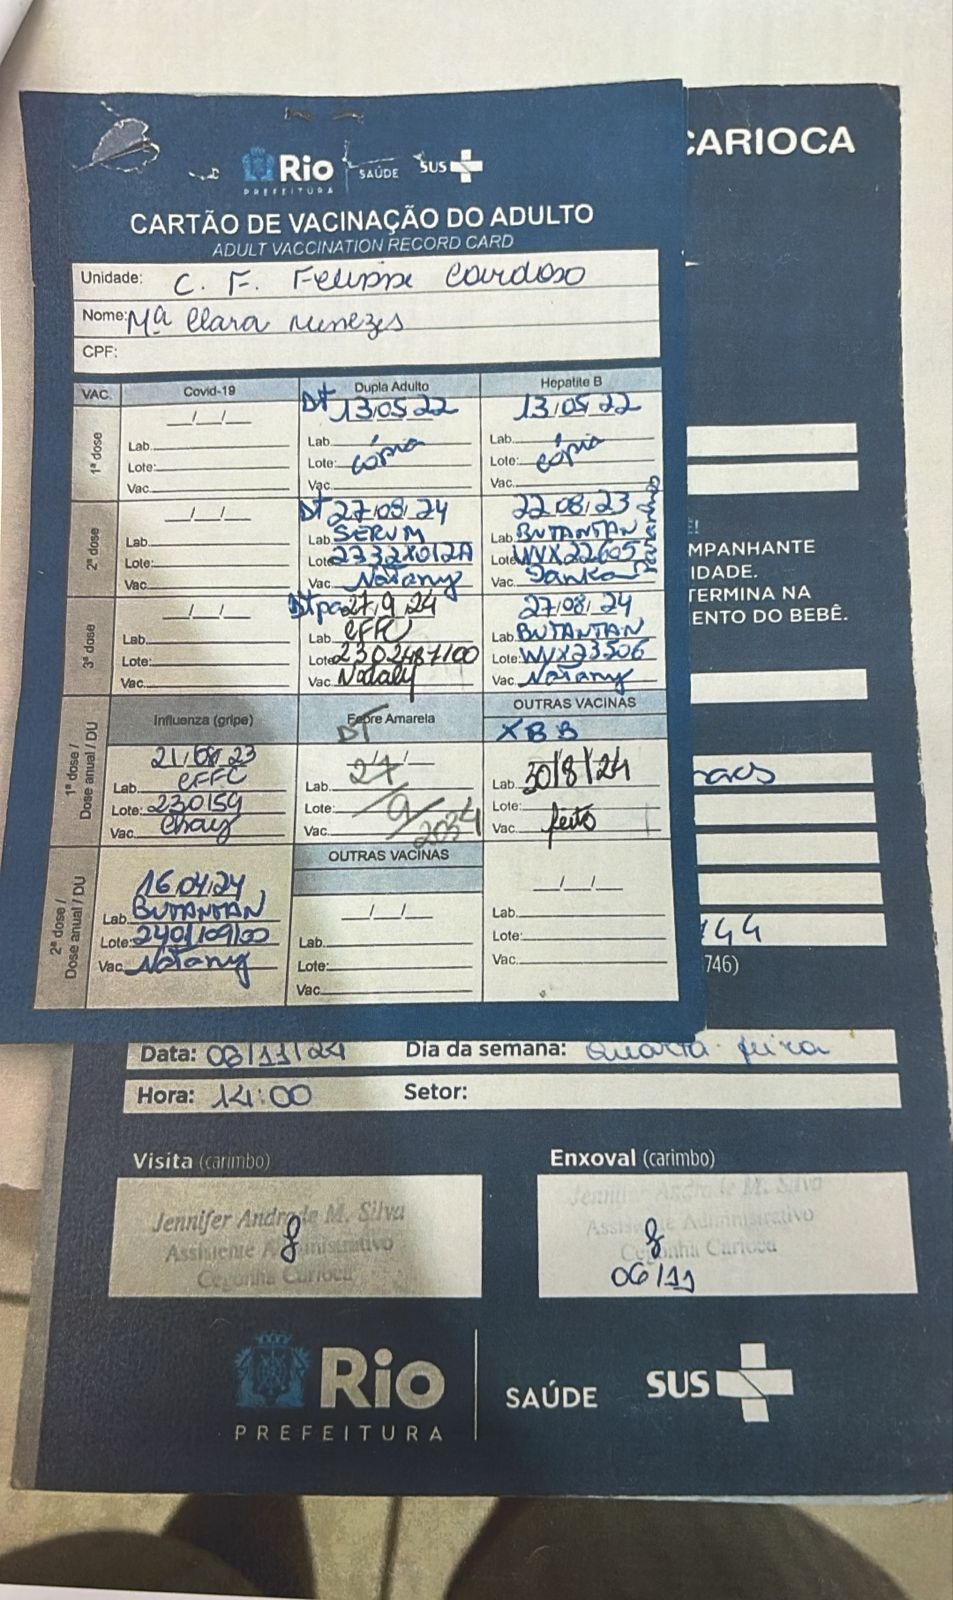 CARIOCA
Rio
PREFEITURA
SAÚDE
SUS
CARTÃO DE VACINAÇÃO DO ADULTO
ADULT VACCINATION RECORD CARD
Unidade: C. F. Felippe Cardoso
Nome: Mª Clara Menezes
CPF:
VAC.
Covid-19
Dupla Adulto
Hepatite B
1ª dose
__/__/__
Lab.
Lote:
Vac.
DT 13/05/22
Lab.
Lote: cópia
Vac.
13/05/22
Lab.
Lote: cópia
Vac.
2ª dose
__/__/__
Lab.
Lote:
Vac.
DT 27/08/24
Lab. SERUM
Lote 2332X012A
Vac. Natany
22/08/23
Lab. BUTANTAN
Lote WVX22605
Vac.
3ª dose
__/__/__
Lab.
Lote:
Vac.
DTpa 27/9/24
Lab.
Lote 2302487100
Vac. Nataly
27/08/24
Lab. BUTANTAN
Lote: WVX23506
Vac. Natany
1ª dose /
Dose anual / DU
Influenza (gripe)
Febre Amarela
OUTRAS VACINAS
XBB
21/08/23
Lab. EFFC
Lote: 230159
Vac. Chay
DT
__/__/__
27/9/2034
Lab.
Lote:
Vac.
Lab. 30/8/24
Lote:
Vac. feito
2ª dose /
Dose anual / DU
16/04/24
Lab. BUTANTAN
Lote: 2401109/00
Vac. Natany
OUTRAS VACINAS
__/__/__
Lab.
Lote:
Vac.
__/__/__
Lab.
Lote:
Vac.
!
MPANHANTE
IDADE.
TERMINA NA
ENTO DO BEBÊ.
144
746)
Data: 06/11/24 Dia da semana: Quarta-feira
Hora: 14:00 Setor:
Visita (carimbo)
Enxoval (carimbo)
Jennifer Andrade M. Silva
Assistente Administrativo
Cegonha Carioca
Jennifer Andrade M. Silva
Assistente Administrativo
Cegonha Carioca
06/11
Rio
PREFEITURA
SAÚDE
SUS